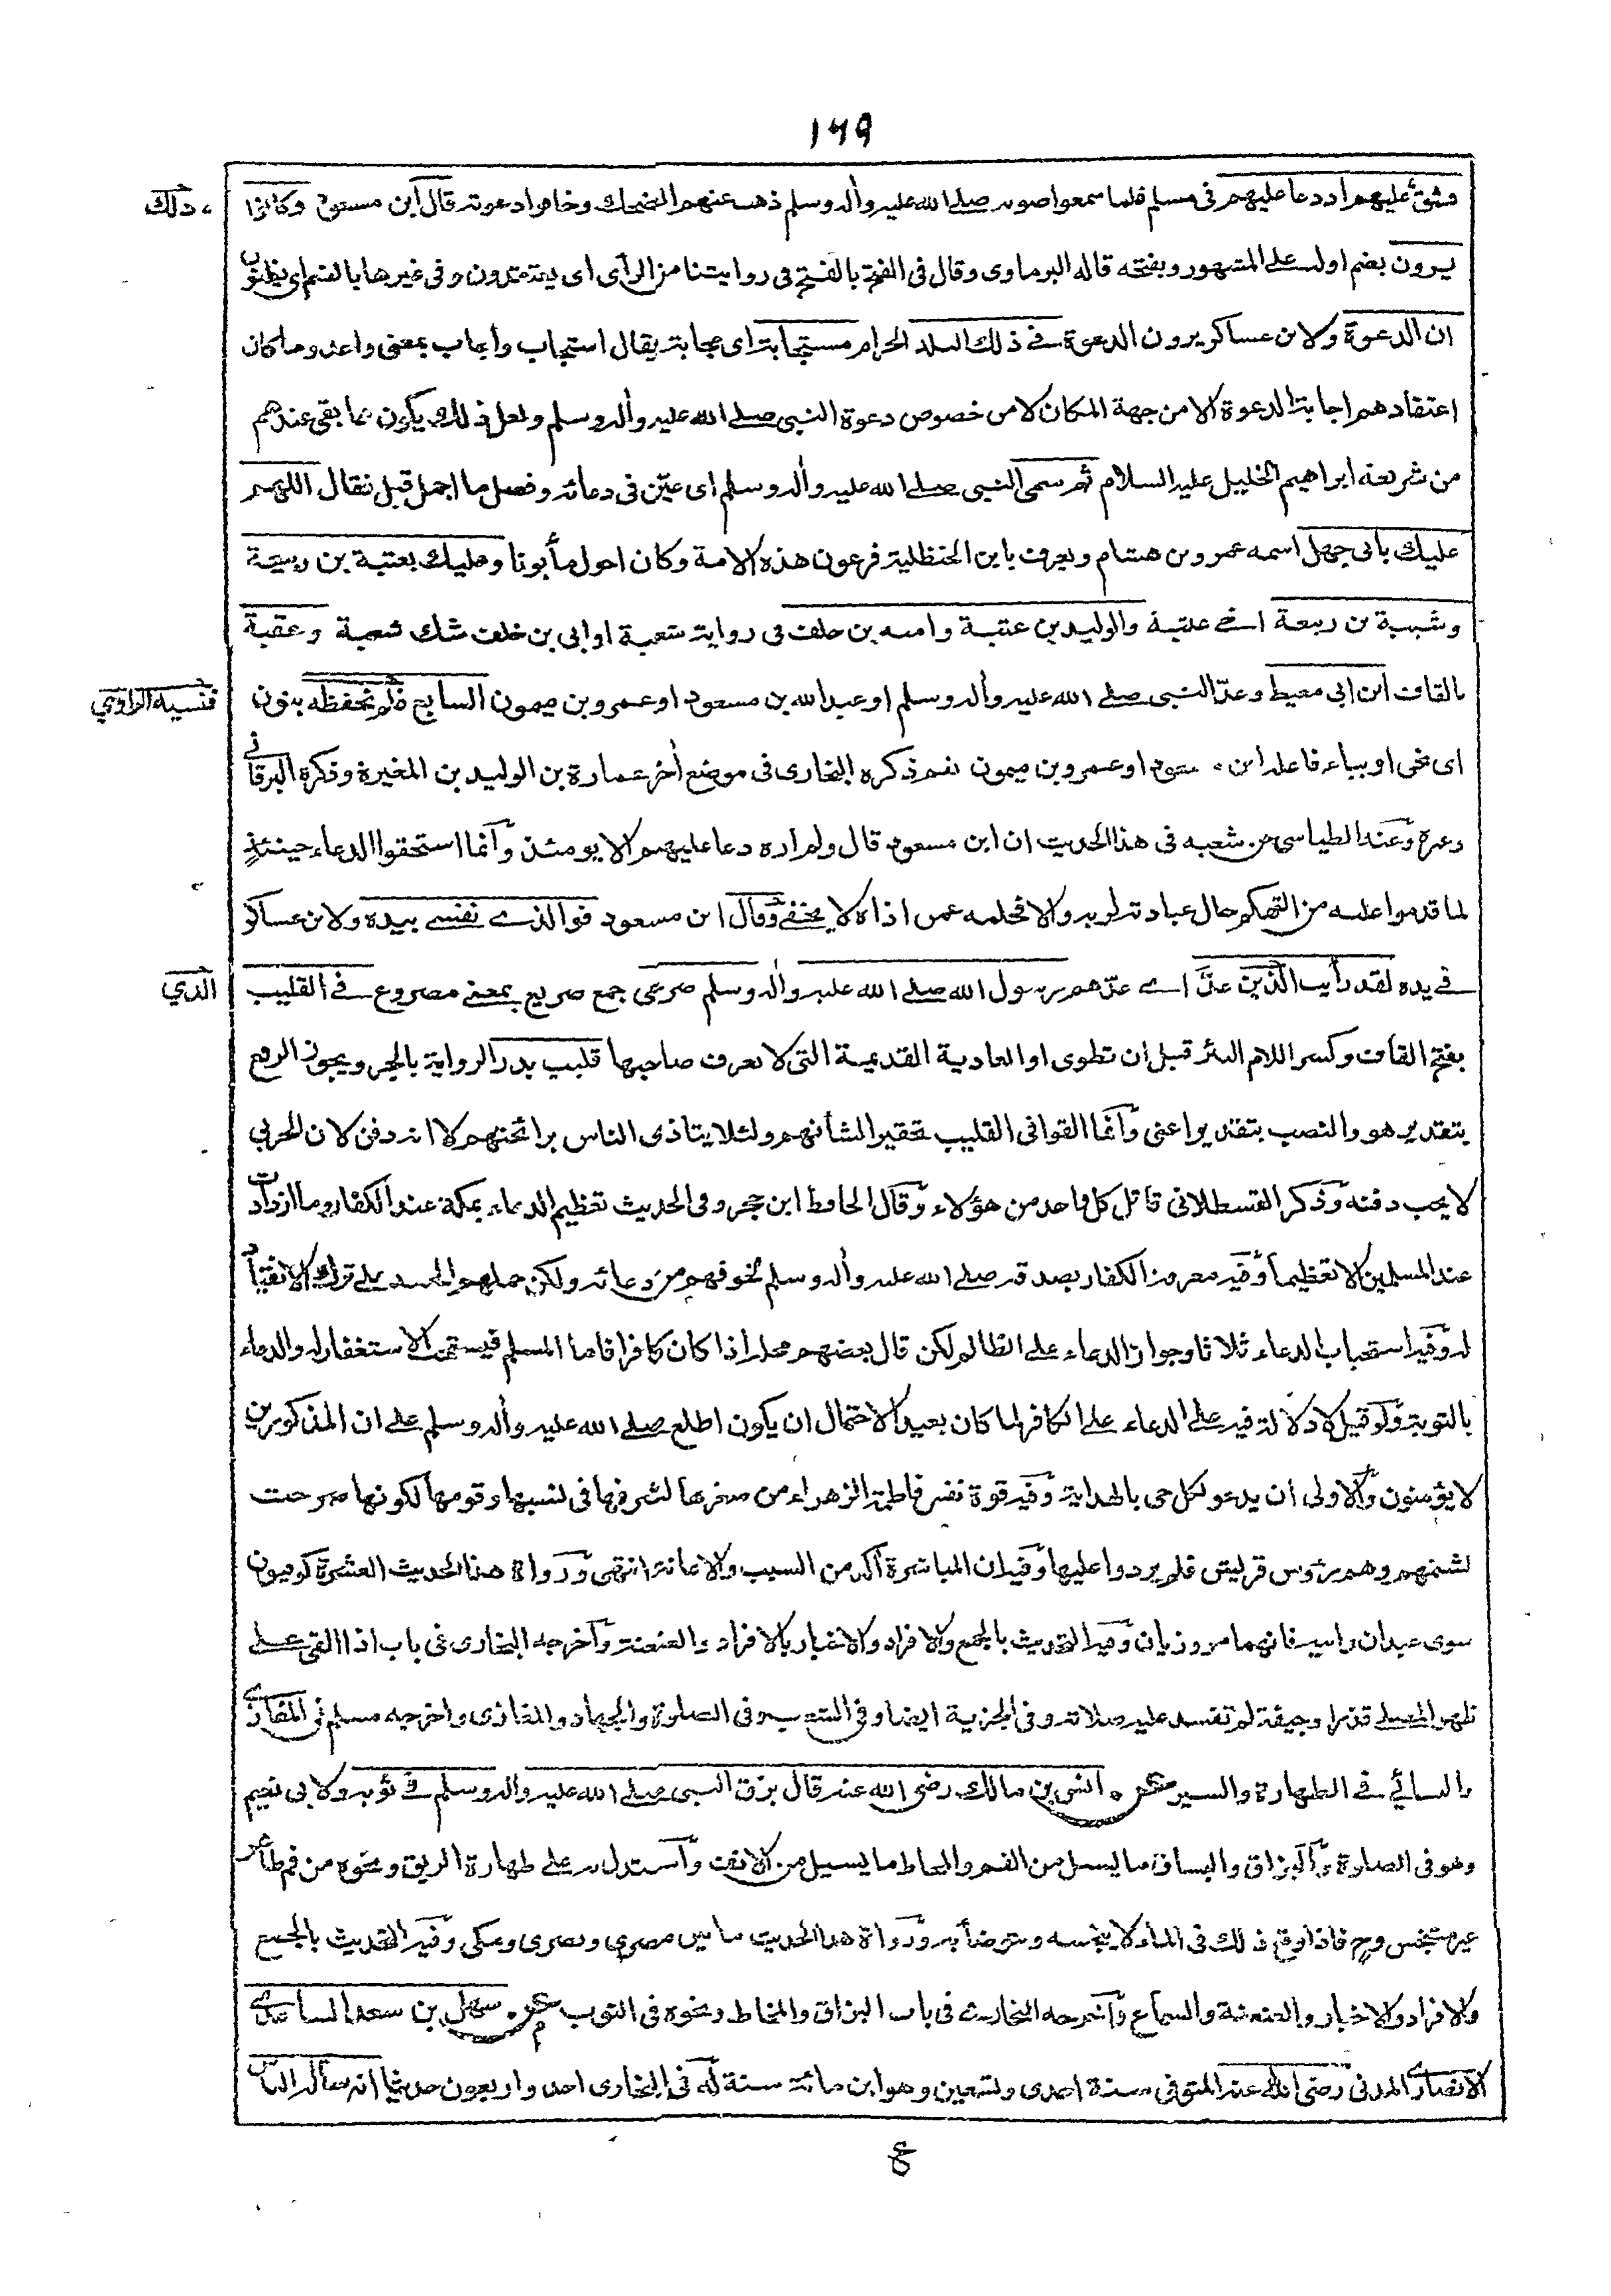 ١٦٩
فشق عليهم اذ دعا عليهم فى مسلم فلما سمعوا صوته صلے الله عليه وأله وسلم ذهب عنهم الضحك وخافوا دعوته قال ابن مسعود وكانوا
ذلك
يرون بضم اوله علے المشهور وبفتحه قاله البرماوى وقال فى الفتح بالفتح فى روايتنا من الرأى اى يعتقدون وفى غيرها بالضم اى يظنون
ان الدعوة ولابن عساكر يرون الدعوة فے ذلك البلد الحرام مستجابة اى مجابة يقال استجاب وأجاب بمعنى واحد وما كان
اعتقادهم اجابة الدعوة الا من جهة المكان لا من خصوص دعوة النبى صلے الله عليه وأله وسلم ولعل ذلك يكون مما بقى عندهم
من شريعة ابراهيم الخليل عليه السلام ثم سمى النبى صلے الله عليه وأله وسلم اى عيّن فى دعائه وفصل ما اجمل قبل فقال اللهم
عليك بابى جهل اسمه عمرو بن هشام ويعرف بابن الحنظلية فرعون هذه الامة وكان احول مأبونا وعليك بعتبة بن ربيعة
وشيبة بن ربيعة اخے عتبة والوليد بن عتبة وامية بن خلف فى رواية شعبة او ابى بن خلف شك شعبة وعقبة
بالقاف ابن ابى معيط وعدّ النبى صلے الله عليه وأله وسلم او عبد الله بن مسعود او عمرو بن ميمون السابع فلم نحفظه بنون
فنسيه الراوي
اى نحن او بياء فاعله ابن مسعود او عمرو بن ميمون نعم ذكره البخارى فى موضع أخر عمارة بن الوليد بن المغيرة وذكره البرقانى
وغيره وعند الطيالسى عن شعبه فى هذا الحديث ان ابن مسعود قال ولم اره دعا عليهم الا يومئذ وانما استحقوا الدعاء حينئذٍ
لما قدموا عليه من التهكم حال عبادته لربه والا فحلمه عمن اذاه لا يخفے وقال ابن مسعود فوالذے نفسے بيده ولابن عساكر
فے يده لقد رأيت الذين عدّ اے عدّهم رسول الله صلے الله عليه وأله وسلم صرعى جمع صريع بمعنے مصروع فے القليب
الذي
بفتح القاف وكسر اللام البئر قبل ان تطوى او العادية القديمة التى لا يعرف صاحبها قليب بدر الرواية بالجر ويجوز الرفع
بتقدير هو والنصب بتقدير اعنى وانما القوا فى القليب تحقيرا لشأنهم ولئلا يتاذى الناس برائحتهم لا انه دفن لان الحربى
لا يجب دفنه وذكر القسطلانى قاتل كل واحد من هؤلاء وقال الحافظ ابن حجر وفى الحديث تعظيم الدعاء بمكة عند الكفار وما ازدادت
عند المسلمين الا تعظيما وفيه معرفة الكفار بصدقه صلے الله عليه وأله وسلم لخوفهم من دعائه ولكن حملهم الحسد علے ترك الانقياد
له وفيه استحباب الدعاء ثلاثا وجواز الدعاء علے الظالم لكن قال بعضهم محله اذا كان كافرا فاما المسلم فيستحب الاستغفار له والدعاء
بالتوبة ولو قيل لا دلالة فيه علے الدعاء علے الكافر لما كان بعيدا لاحتمال ان يكون اطلع صلے الله عليه وأله وسلم علے ان المذكورين
لا يؤمنون والاولى ان يدعو لكل حى بالهداية وفيه قوة نفس فاطمة الزهراء من صغرها لشرفها فى نسبها وقومها لكونها صرحت
بشتمهم وهم رؤس قريش فلم يردوا عليها وفيه ان المباشرة أكد من السبب والاعانة انتهى ورواة هذا الحديث العشرة كوفيون
سوى عبدان وابيه فانهما مروزيان وفيه التحديث بالجمع والافراد والاخبار بالافراد والعنعنة وأخرجه البخارى فى باب اذا القى علے
ظهر المصلے قذرا وجيفة لم تفسد عليه صلاته وفى الجزية ايضا وفى الشعب وفى الصلوة والجهاد والمغازى واخرجه مسلم فى المغازے
والنسائي فے الطهارة والسير عن انس بن مالك رضى الله عنه قال بزق النبى صلے الله عليه وأله وسلم فے ثوبه ولابى نعيم
وهو فى الصلوة والبزاق والبساق ما يسيل من الفم والمخاط ما يسيل من الانف وأستدل به علے طهارة الريق ونحوه من فم طاهر
غير متنجس وح فاذا وقع ذلك فى الماء لا ينجسه ويتوضأ به ورواة هذا الحديث ما بين مصرى وبصرى ومكى وفيه التحديث بالجمع
والافراد والاخبار والعنعنة والسماع وأخرجه البخارے فى باب البزاق والمخاط ونحوه فى الثوب عن سهل بن سعد الساعدے
الانصارى المدنى رضى الله عنه المتوفى سنة احدى وتسعين وهو ابن مائة سنة له فى البخارى احد واربعون حديثا انه سأله الناس